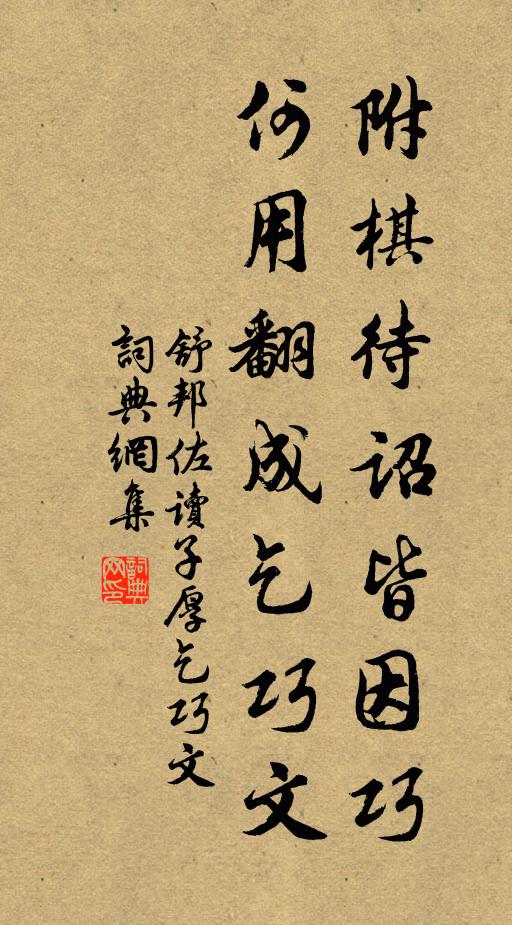 附棋待詔皆因巧
何用翻成乞巧文
舒邦佐讀子厚乞巧文
詞典網集
詞典網印